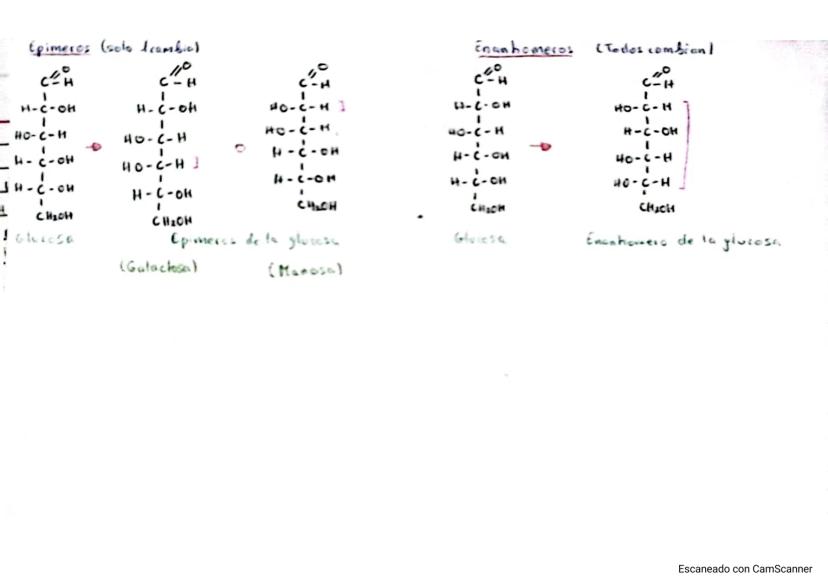 Epimeros (solo 1 cambia)
C=O-H C=O-H C=O-H
H-C-OH H-C-OH HO-C-H
HO-C-H HO-C-H HO-C-H
H-C-OH HO-C-H H-C-OH
H-C-OH H-C-OH H-C-OH
CH2OH CH2OH CH2OH
Glucosa Epimeros de la glucosa
(Galactosa) (Manosa)
Enantiomeros (Todos cambian)
C=O-H C=O-H
H-C-OH HO-C-H
HO-C-H H-C-OH
H-C-OH HO-C-H
H-C-OH HO-C-H
CH2OH CH2OH
Glucosa Enantiomero de la glucosa
Escaneado con CamScanner